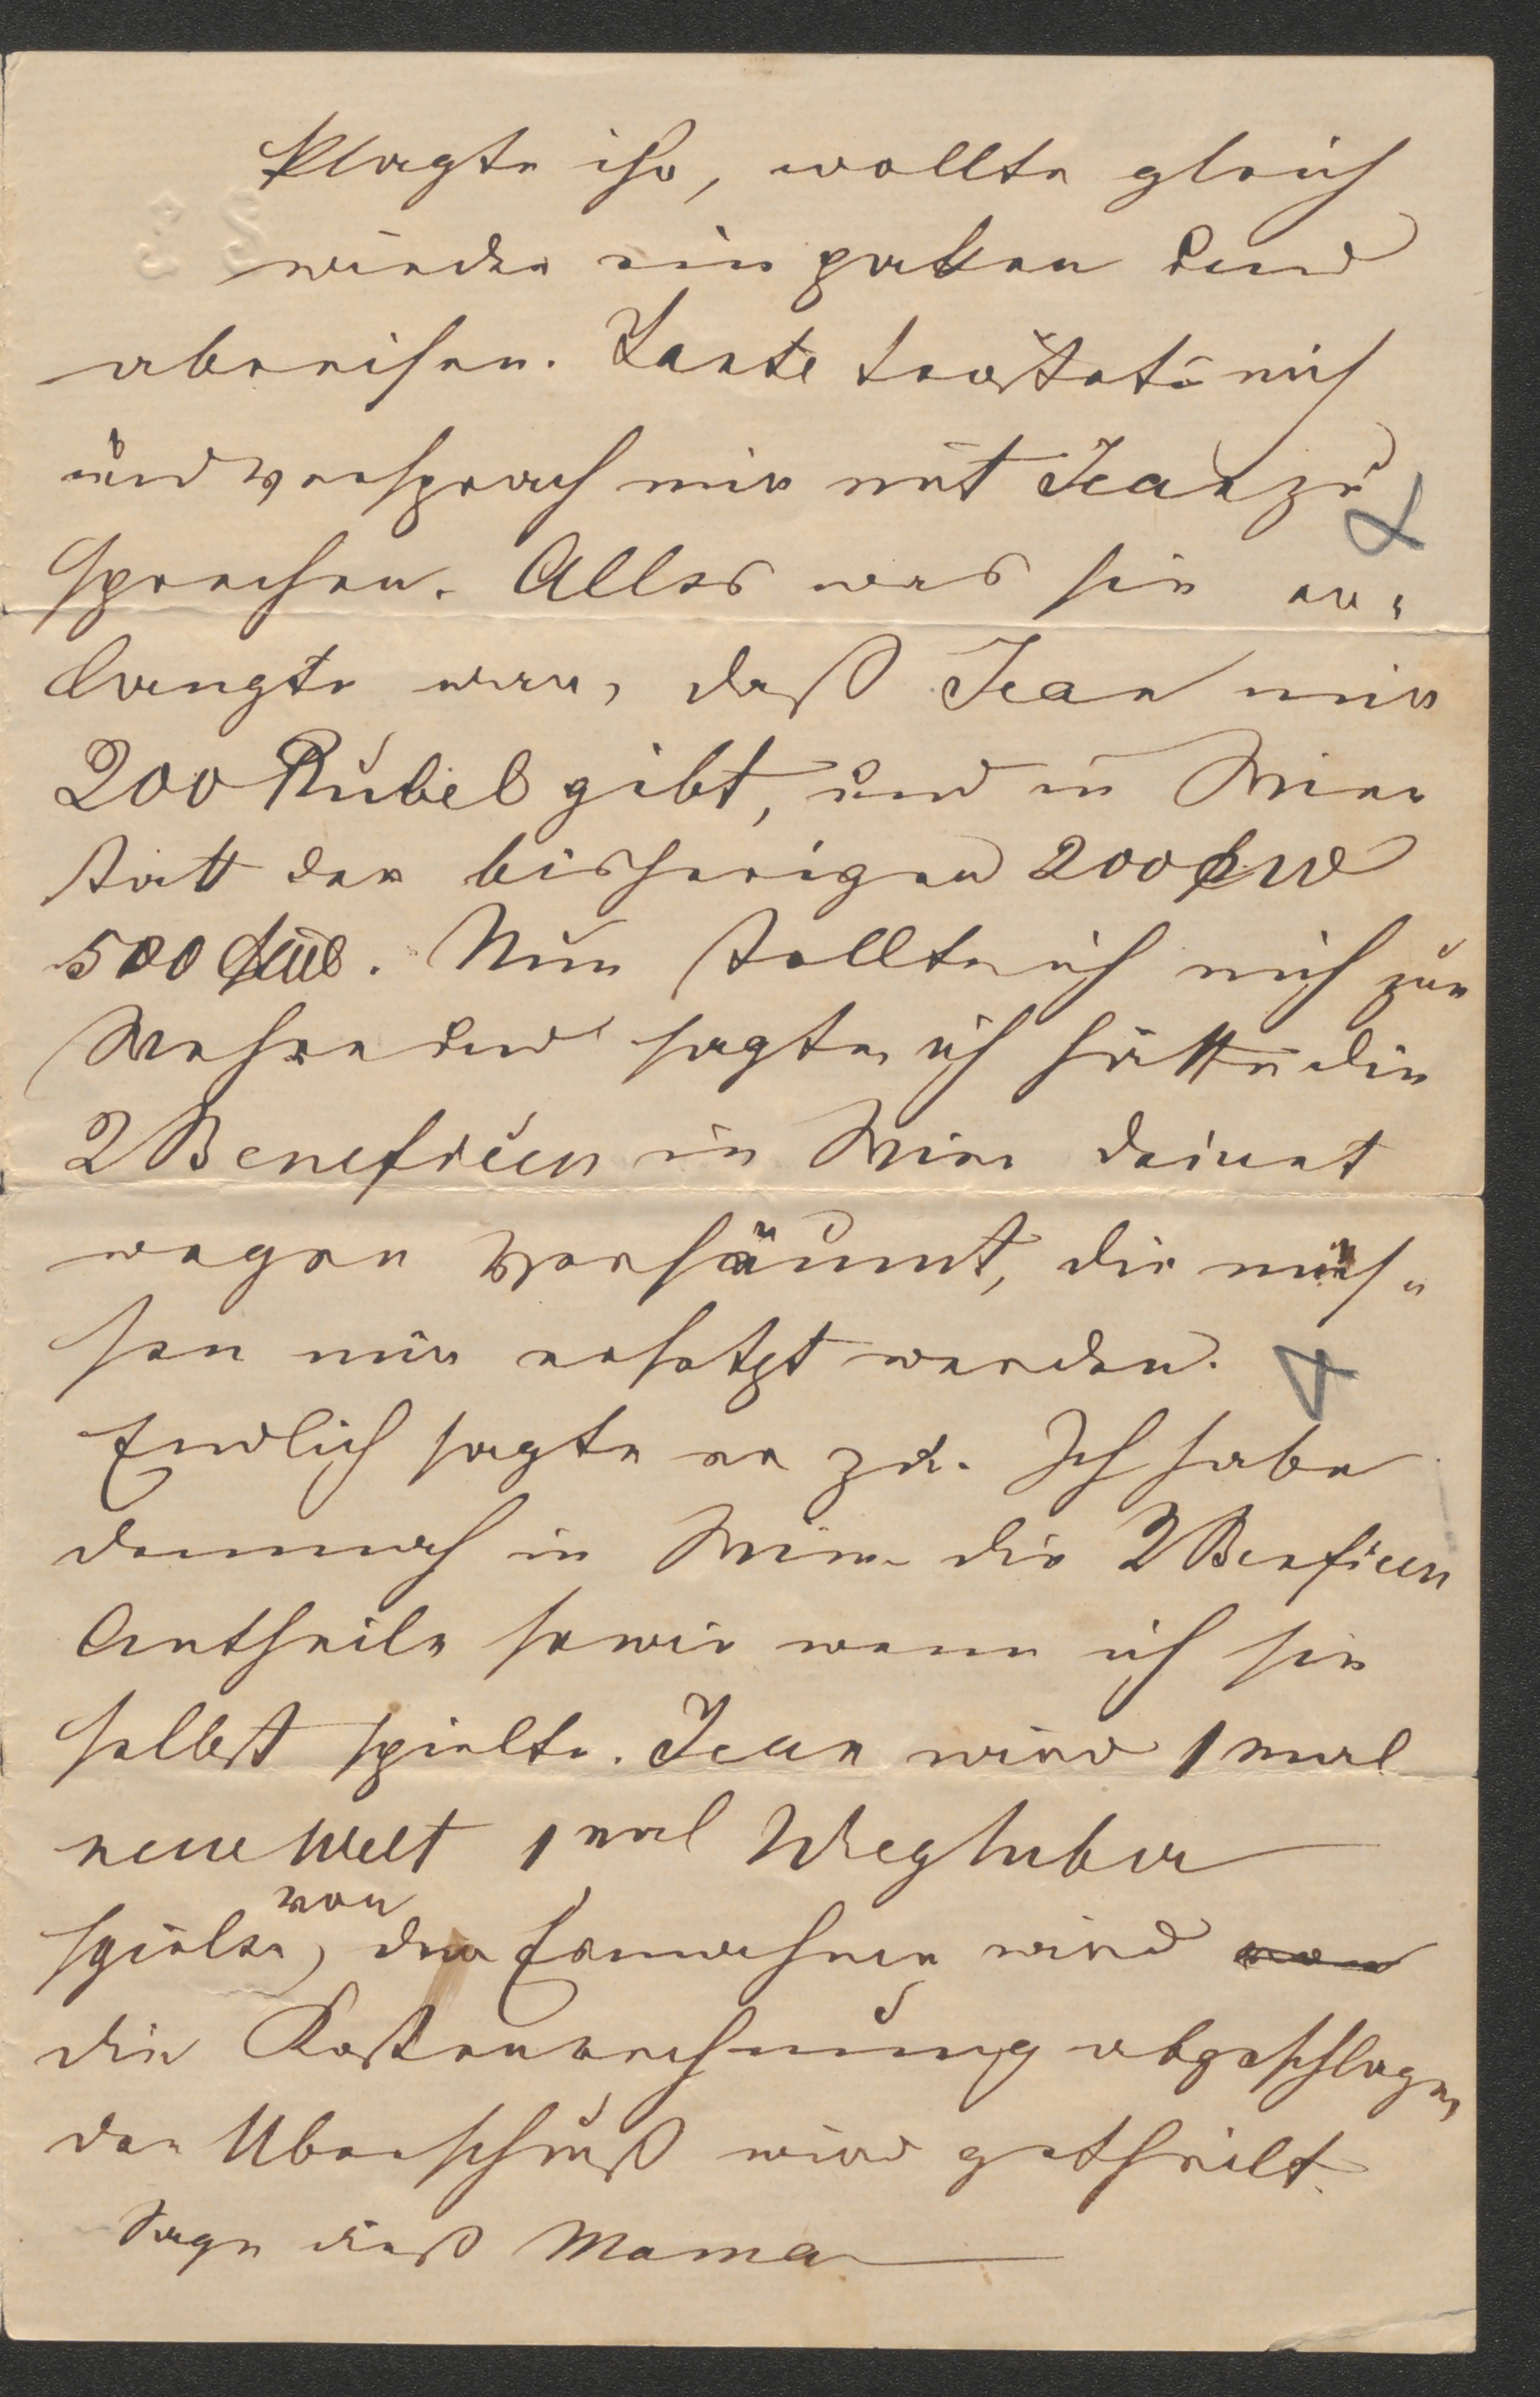 klagte ihr, wollte gleich
wieder ein paken und
abreisen. Tante tröstete mich
und versprach mir mit Jean zu
sprechen. Alles was sie er-
langte war, daß Jean mir
200 Rubel gibt, und in Wien
statt der bisherigen 200
500 . Nun stellte ich mich zur
Wehre und sagte, ich hätte die
2 Beneficen in Wien deinet
wegen versäumt, die müs-
sen mir ersetzt werden.
Endlich sagte er zu. Ich habe
demnach in Wien die 2 Benficen
Antheile sowie wenn ich sie
selbst spielte. Jean wird 1 mal
neue Welt 1 mal Weghuber
spielen, von der Einnahme wird von
die Kostenrechnung abgeschlagen,
der Uberschuß wird getheilt.
Sage dieß Mama